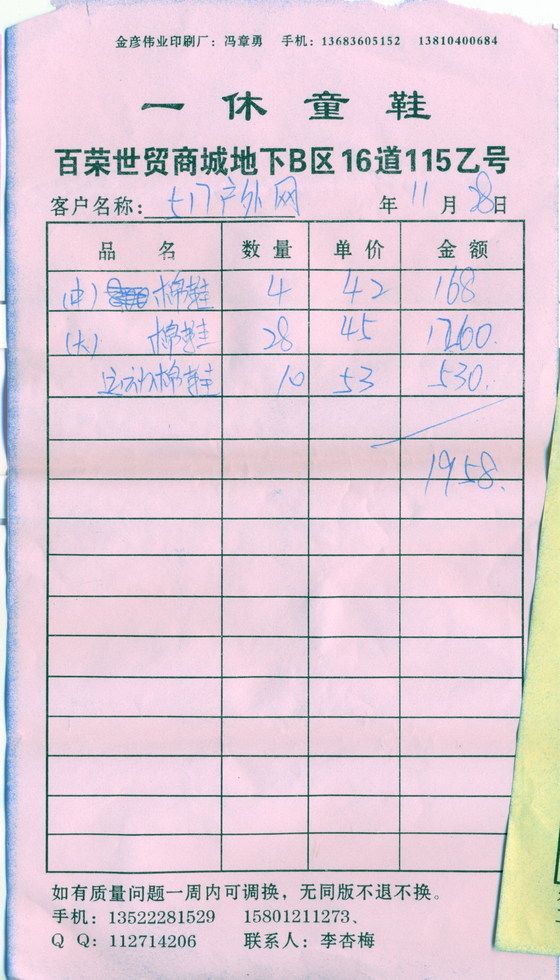 金彦伟业印刷厂：冯章勇 手机：13683605152 13810400684
一休童鞋
百荣世贸商城地下B区16道115乙号
客户名称：517户外网 年 11 月 28 日
品名 数量 单价 金额
(中) 棉鞋 4 42 168
(大) 棉鞋 28 45 1260.
运动棉鞋 10 53 530.
1958.
如有质量问题一周内可调换，无同版不退不换。
手机：13522281529 15801211273、
Q Q：112714206 联系人：李杏梅